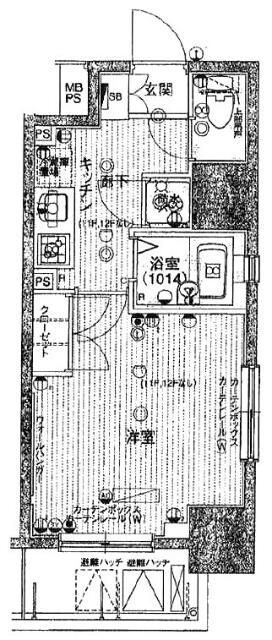 MB
PS
SB
玄関
上部棚
PS
冷蔵庫
置場
キッチン
廊下
(11F,12Fなし)
浴室
(1014)
PS
R
R
クローゼット
(11F,12Fなし)
洋室
カーテンボックス
カーテンレール(W)
ウォールハンガー
カーテンボックス
カーテンレール(W)
避難ハッチ
避難ハッチ